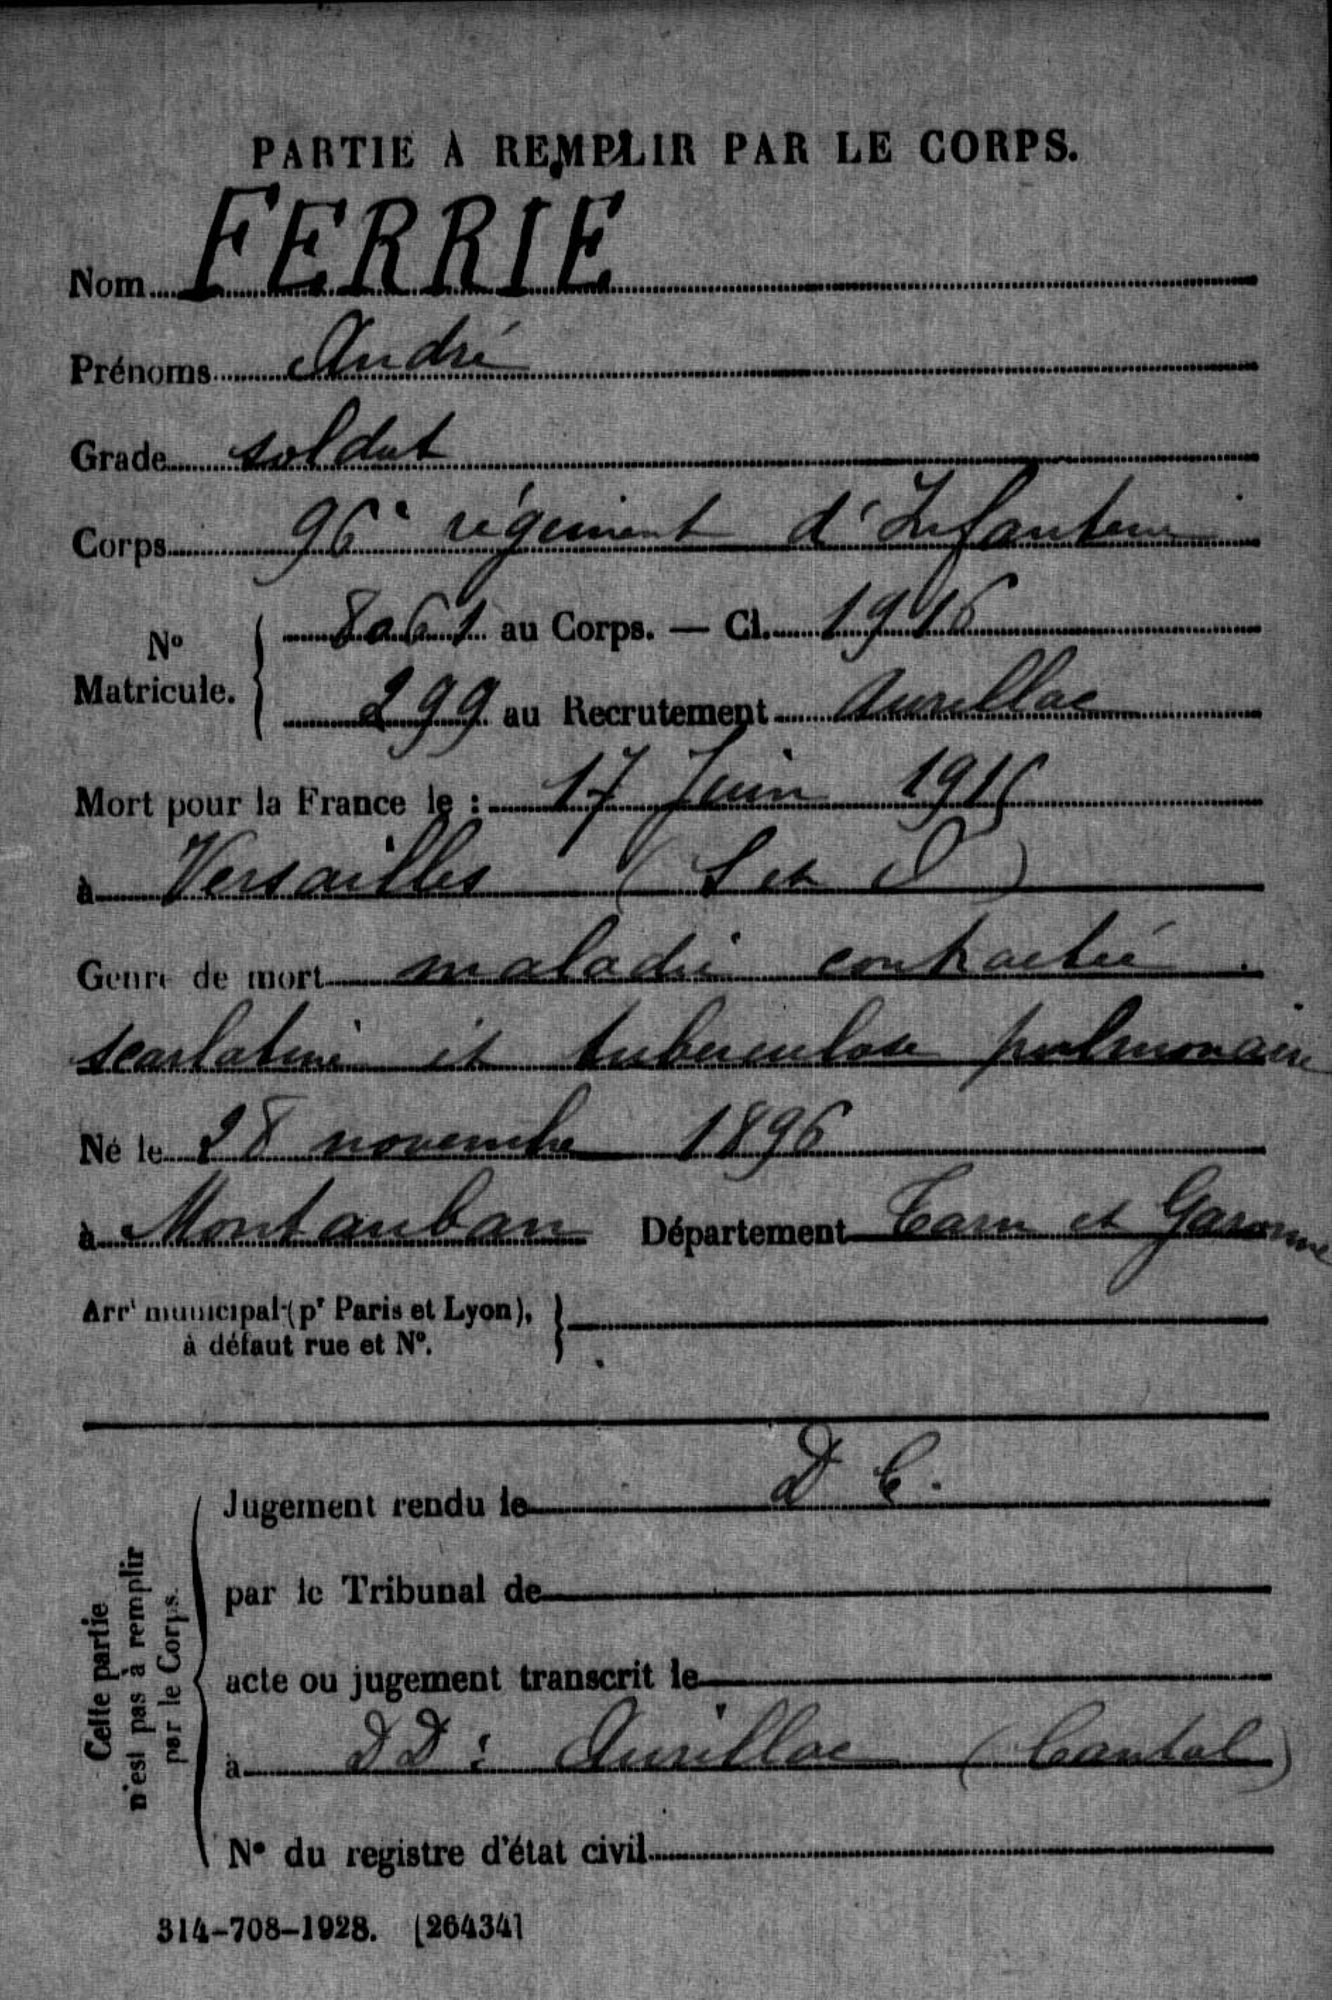 PARTIE À REMPLIR PAR LE CORPS.
Nom FERRIE
Prénoms André
Grade soldat
Corps 96e régiment d'Infanterie
No Matricule. 8061 au Corps. — Cl. 1916
299 au Recrutement Aurillac
Mort pour la France le : 17 Juin 1915
à Versailles (S et O)
Genre de mort maladie contractée
scarlatine et tuberculose pulmonaire
Né le 28 novembre 1896
à Montauban Département Tarn et Garonne
Arrt municipal (pr Paris et Lyon),
à défaut rue et No.
Cette partie
n'est pas à remplir
par le Corps.
Jugement rendu le D C.
par le Tribunal de
acte ou jugement transcrit le
à DD : Aurillac (Cantal)
No du registre d'état civil
314-708-1928. [26434]